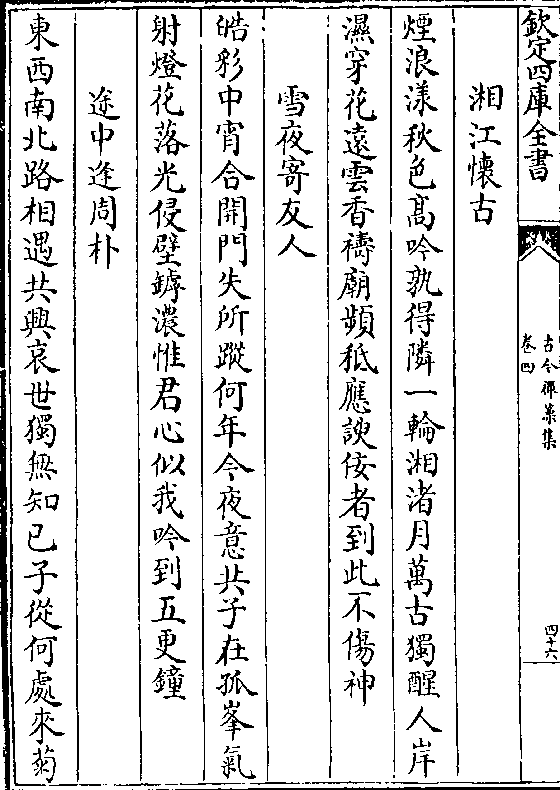 欽定四庫全書
古今禪藻集
卷四
四十六
湘江懷古
煙浪漾秋色高吟孰得隣一輪湘渚月萬古獨醒人岸
濕穿花遠雲香禱廟頻秪應諛佞者到此不傷神
雪夜寄友人
皓彩中宵合開門失所蹤何年今夜意共子在孤峯氣
射燈花落光侵壁罅濃惟君心似我吟到五更鐘
途中逢周朴
東西南北路相遇共興哀世獨無知己子從何處來菊